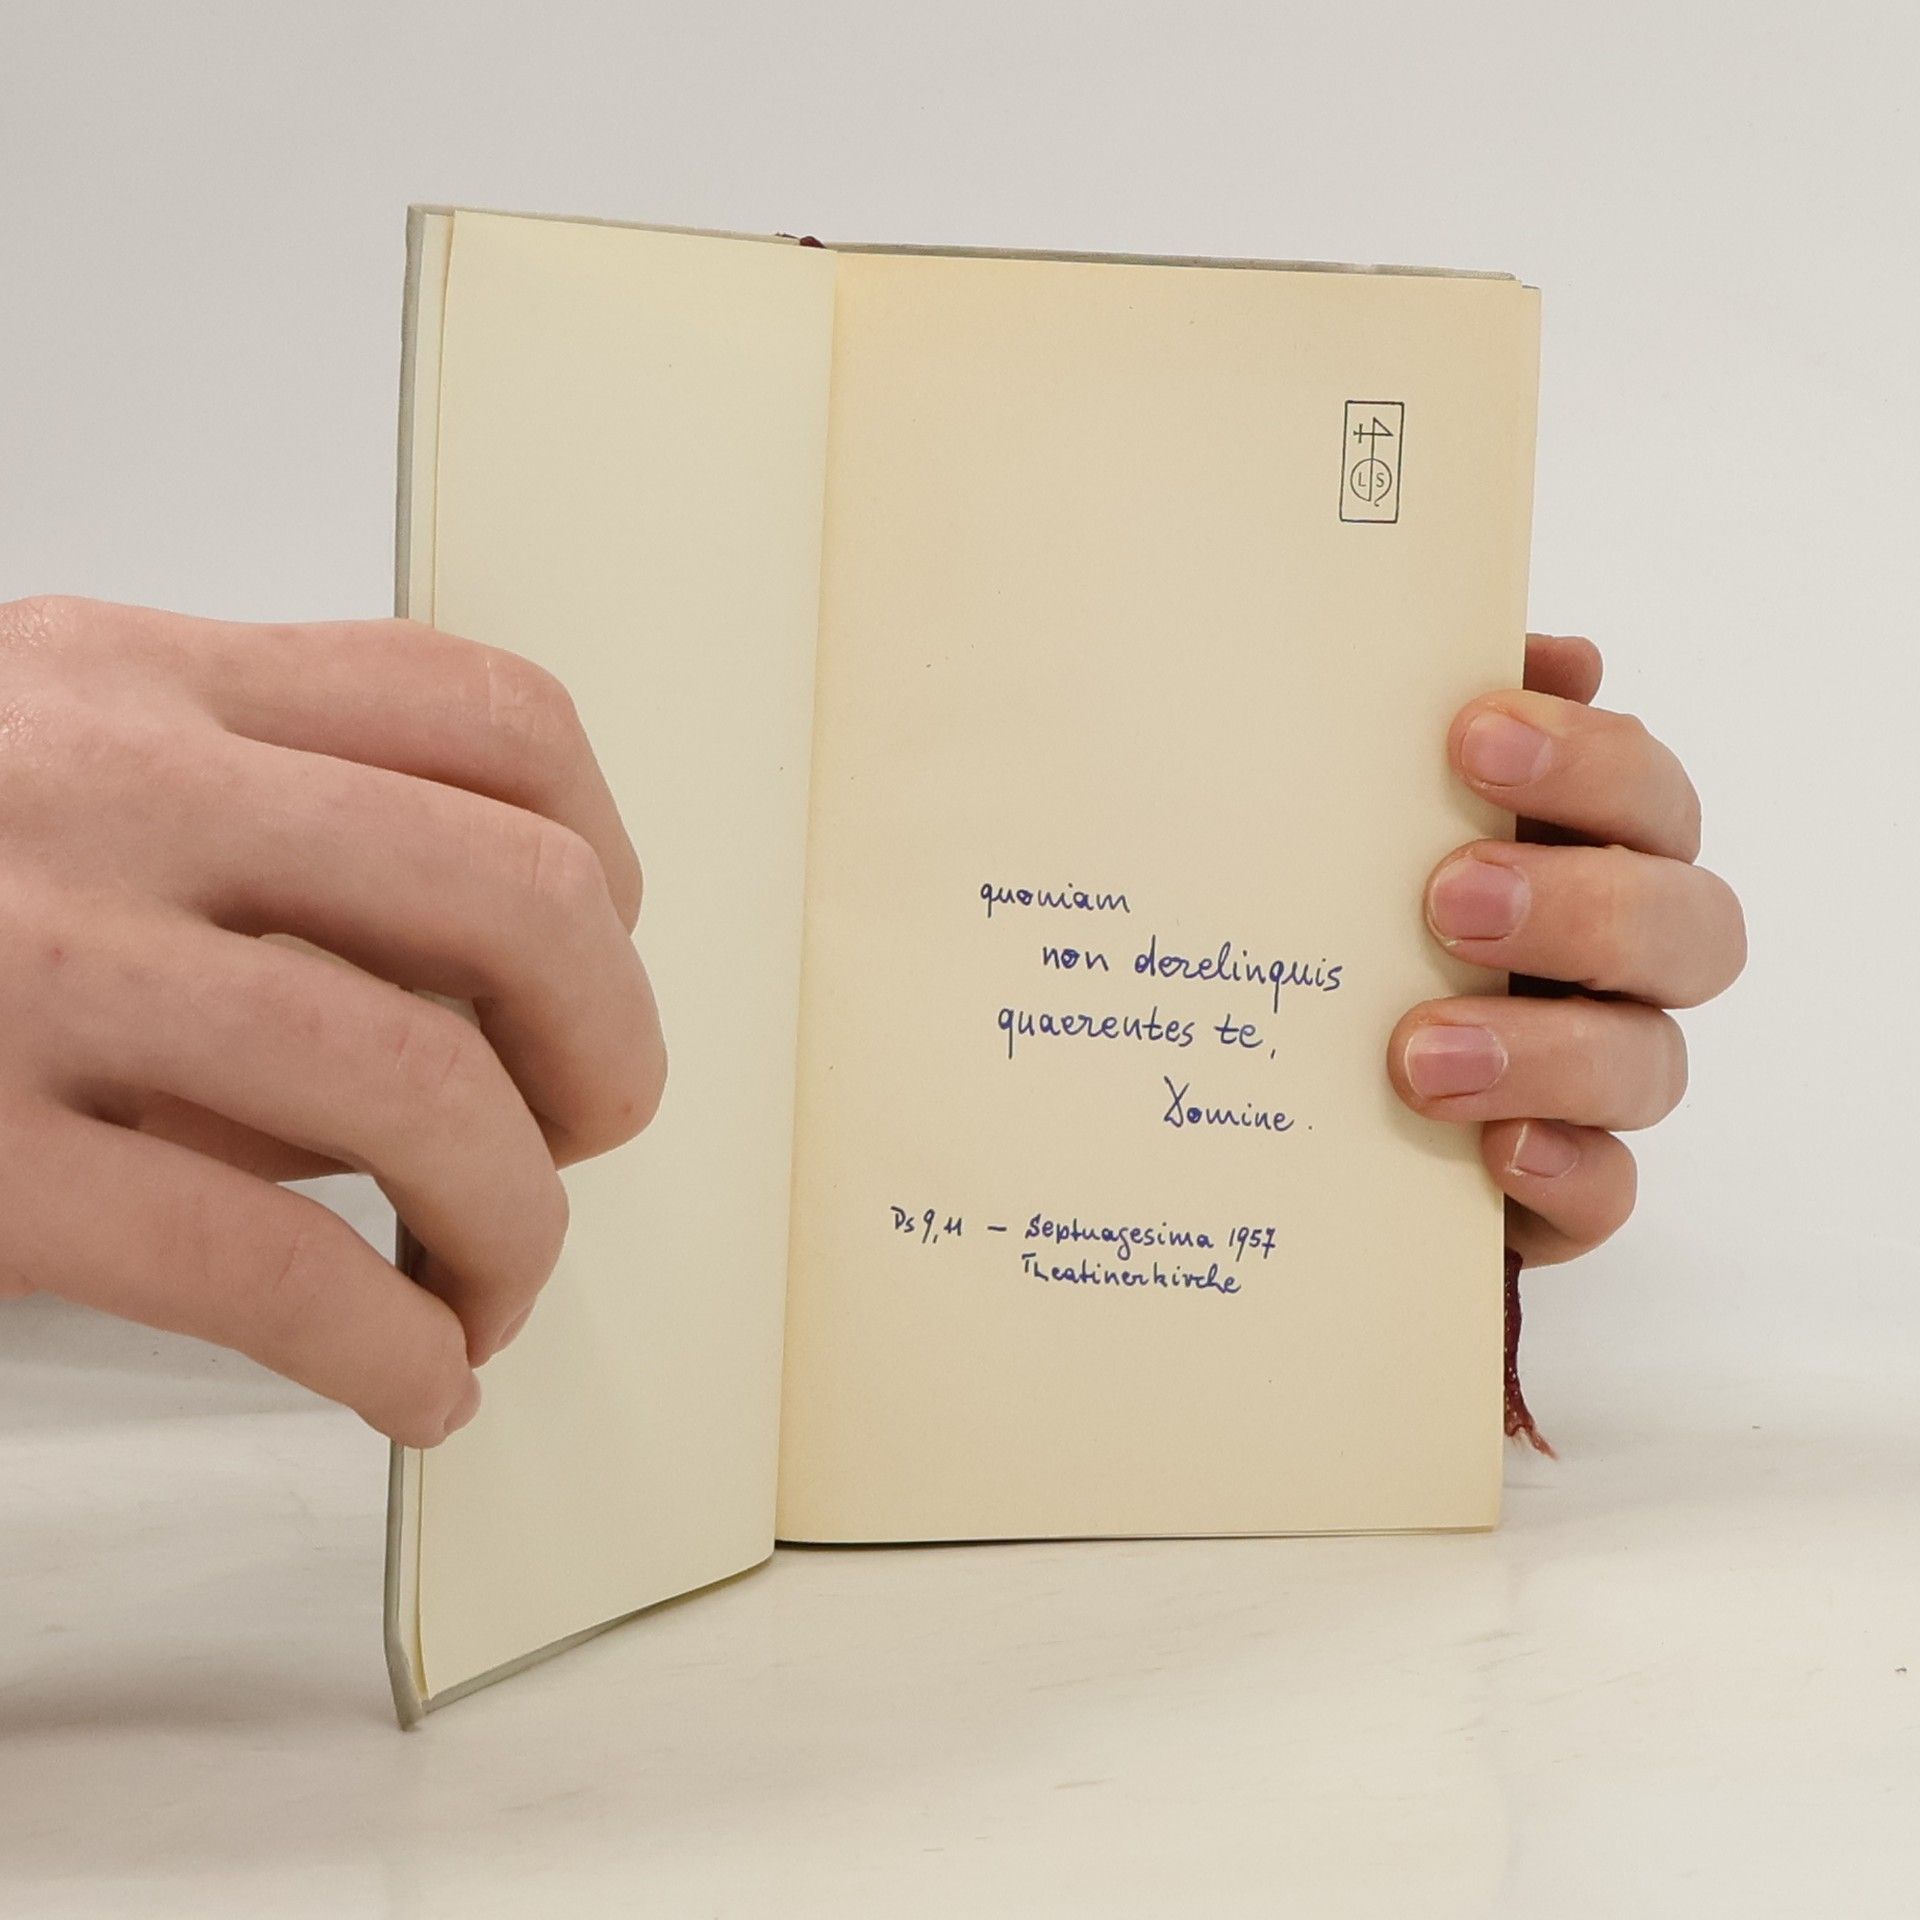 L S
quoniam
non derelinquis
quaerentes te,
Domine.
Ps 9,11 – Septuagesima 1957
Theatinerkirche